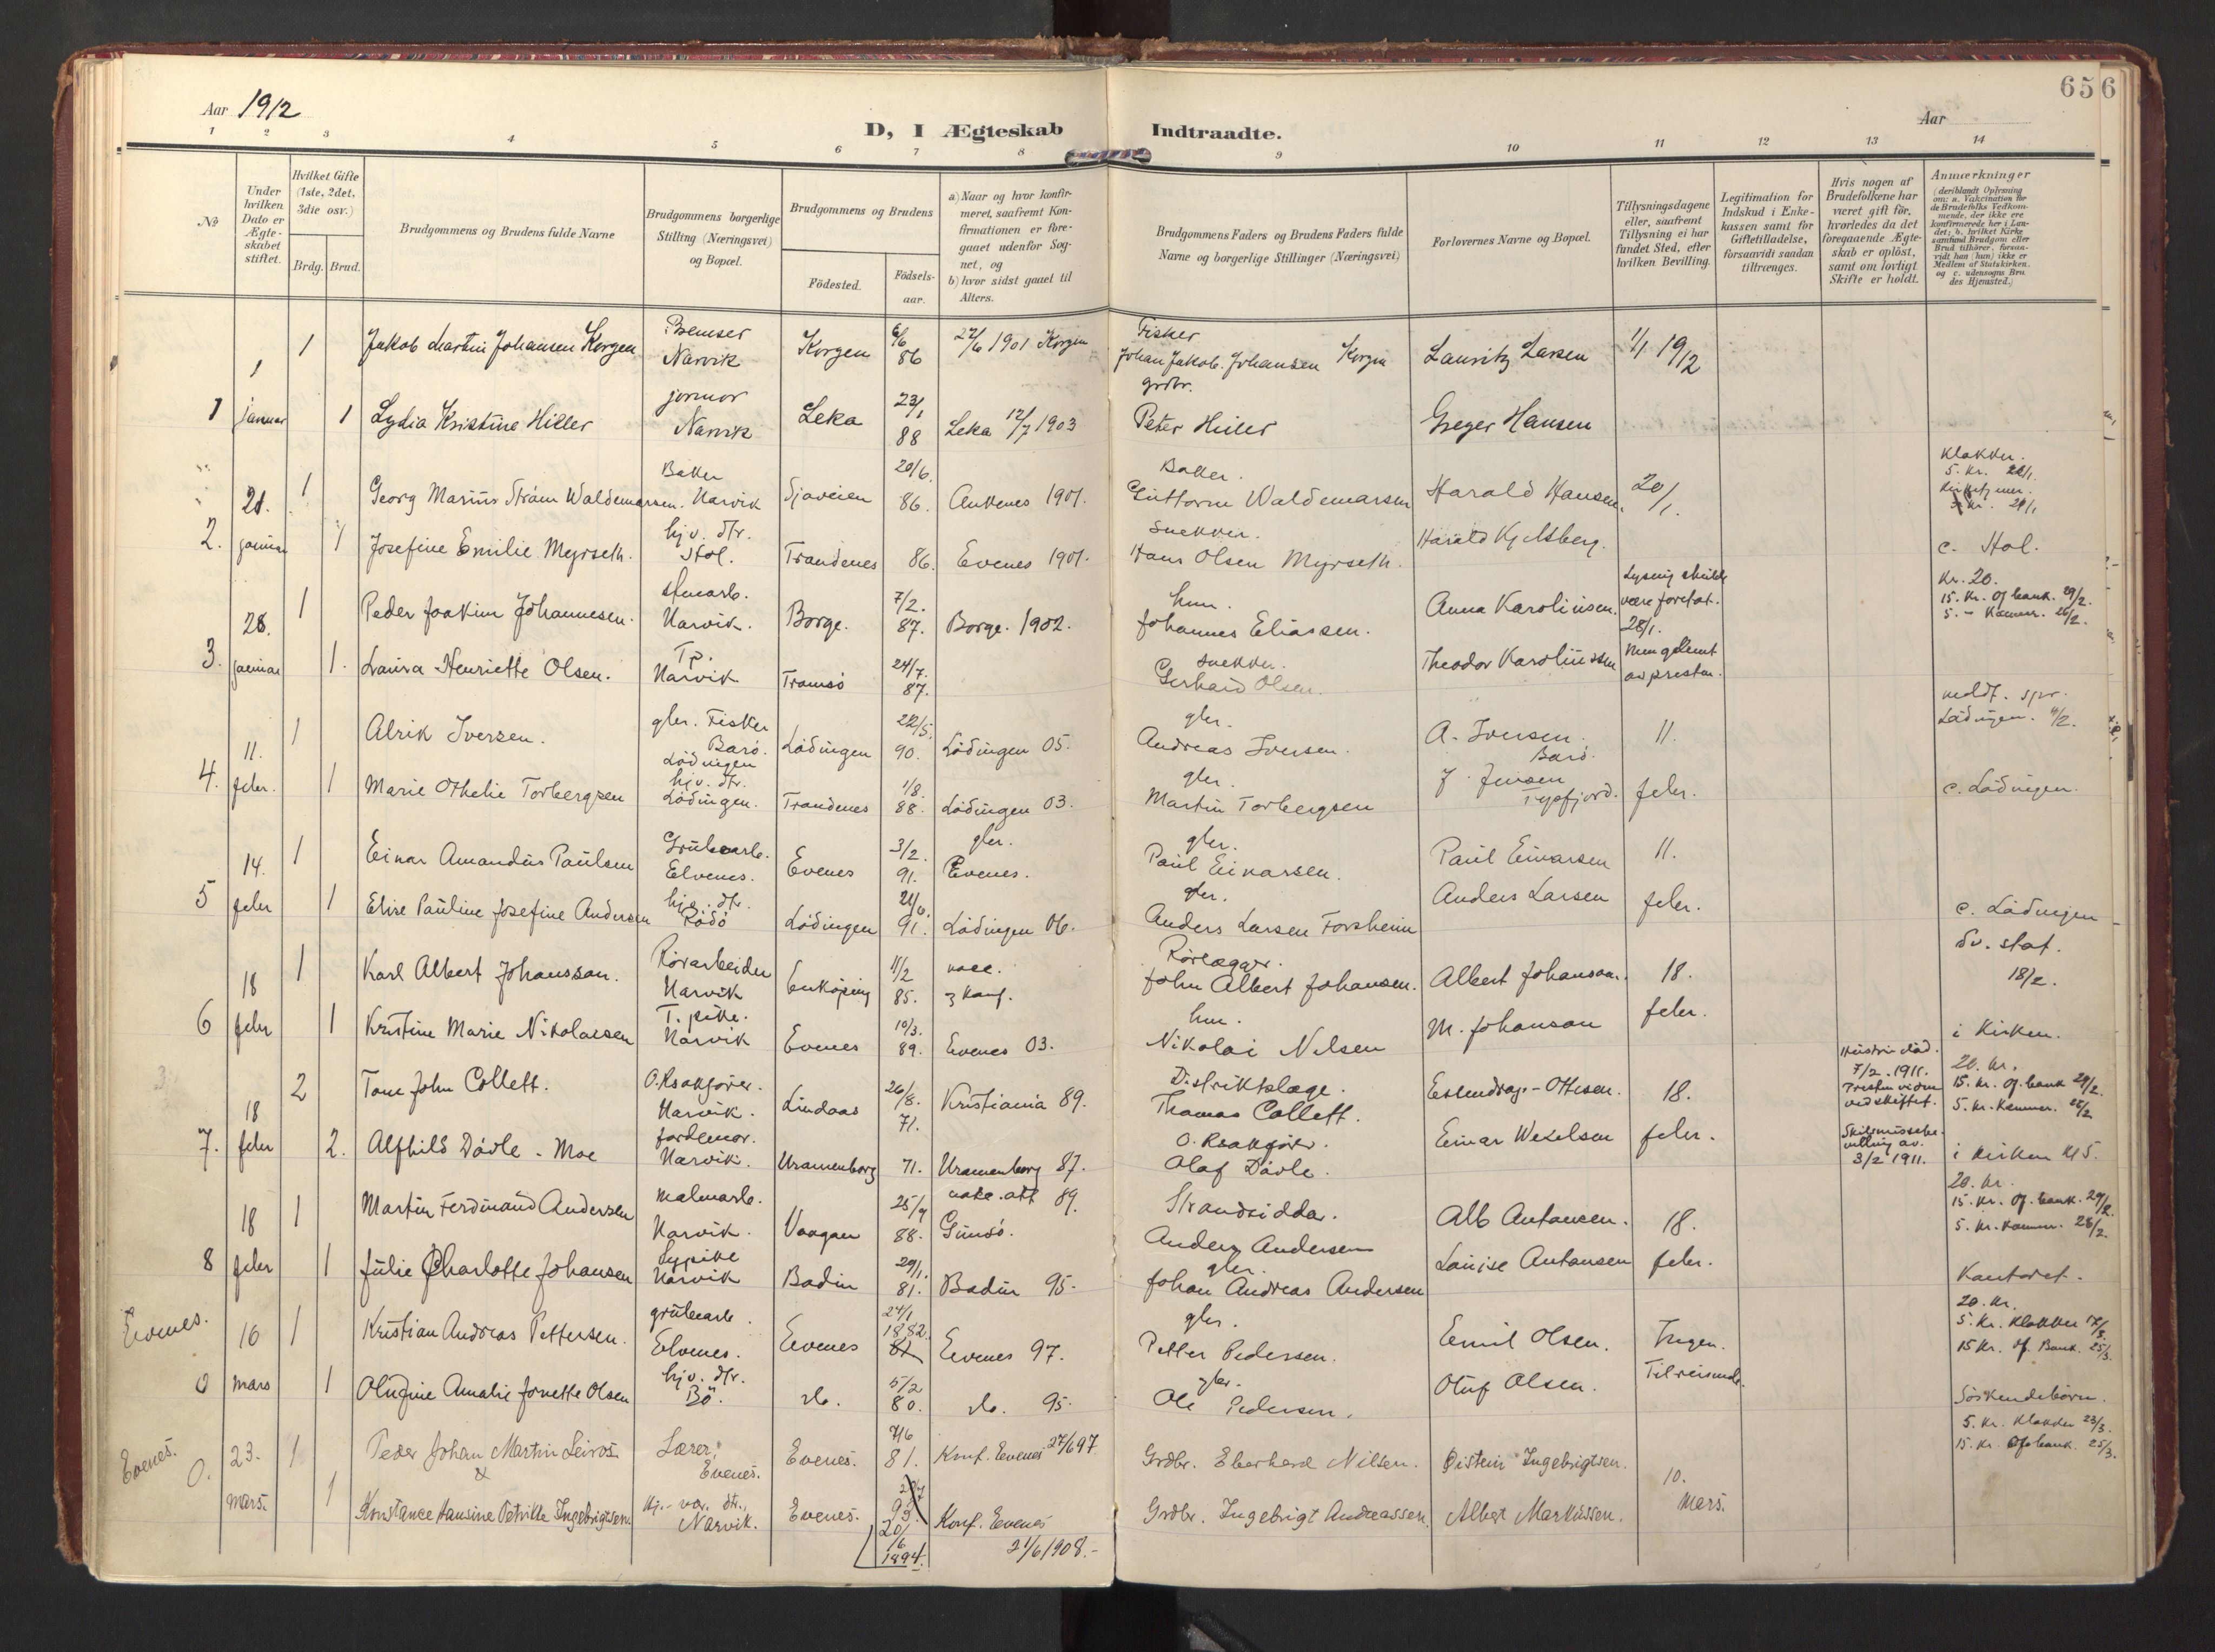 656
Aar 1912
D, I Ægteskab Indtraadte.
Aar
1 2 3 4 5 6 7 8 9 10 11 12 13 14
№
Under hvilken Dato er Ægteskabet stiftet.
Hvilket Gifte (1ste, 2det, 3die osv.)
Brdg. Brud.
Brudgommens og Brudens fulde Navne
Brudgommens borgerlige Stilling (Næringsvei) og Bopæl.
Brudgommens og Brudens
Födested. Födsels-aar.
a) Naar og hvor konfir-
meret, saafremt Kon-
firmationen er fore-
gaaet udenfor Sog-
net, og
b) hvor sidst gaaet til
Alters.
Brudgommens Faders og Brudens Faders fulde
Navne og borgerlige Stillinger (Næringsvei)
Forlovernes Navne og Bopæl.
Tillysningsdagene
eller, saafremt
Tillysning ei har
fundet Sted, efter
hvilken Bevilling.
Legitimation for
Indskud i Enke-
kassen samt for
Giftetilladelse,
forsaavidt saadan
tiltrænges.
Hvis nogen af
Brudefolkene har
været gift för,
hvorledes da det
foregaaende Ægte-
skab er oplöst,
samt om lovligt
Skifte er holdt.
Anmærkninger
(deriblandt Oplysning
om: a. Vaccination for
de Brudefolks Vedkom-
mende, der ikke ere
konfirmerede her i Lan-
det; b. hvilket Kirke
samfund Brudgom eller
Brud tilhörer, forsaa-
vidt han (hun) ikke er
Medlem af Statskirken.
og c. udensogns Bru
des Hjemsted.)
1 1 Jakob Martin Johansen Korgen Bremser Narvik Korgen 6/6 86 27/6 1901 Korgen Fisker Johan Jakob Johansen Korgen Lauritz Larsen 1/1 1912
1 januar 1 Lydia Kristine Hiller jormor Narvik Leka 23/1 88 Leka 12/7 1903 grdbr. Peter Hiller Greger Hansen
21. 1 Georg Marius Strøm Waldemarsen. Baker Narvik Sjaveien 20/6. 86. Ankenes 1901. Baker. Guttorm Waldemarsen Harald Hansen. 20/1. Klokker. 5. Kr.
2. januar 1 Josefine Emilie Myrseth. hjv. dtr. Stol. Trandenes 86. Evenes 1901. Snekker. Hans Olsen Myrseth. Harald Kjelsberg. c. Hol.
28. 1 Peder Joakim Johannesen. Narvik. Borge. 7/2. 87. Borge. 1902. hm. Johannes Eliassen. Anna Karolinsen. Lysning skulde være foretat. 28/1. Kr. 20. 15. Kr. Of. bank. 29/2. 5. - Kæmner. 26/2.
3. januar 1. Laura Henriette Olsen. Tp. Narvik Tromsö 24/7. 87. Snekker. Gerhard Olsen. Theodor Karolinssen Men glemt av presten.
11. 1 Alrik Iversen. gbr. Fisker Barö. Lödingen Lödingen 22/5. 90. Lödingen 05. gbr. Andreas Iversen. A. Iversen. Barö. 11. meldt. spr. Lödingen. 11/2.
4. febr. 1 Marie Othelie Torbergsen hjv. dtr. Lödingen. Trandenes 1/8. 88. Lödingen 03. gbr. Martin Torbergsen J. Jensen Tysfjord. febr. c. Lödingen.
14. 1 Einar Amandus Paulsen Grubearb. Elvenes. Evenes 3/2. 91. Evenes. gbr. Paul Einarsen. Paul Einarsen 11.
5 febr 1 Elise Pauline Josefine Andersen hjv. dtr. Rödö Lödingen 21/6. 91. Lödingen 06. gbr. Anders Larsen Forsheim Anders Larsen febr. c. Lödingen
18 1 Karl Albert Johansson. Rörarbeider Narvik Enköping 11/2 85. vacc. 3 Rörlægger. John Albert Johansen. Albert Johanson. 18. Sv. stat. 18/2.
6 febr 1 Kristine Marie Nikolaisen T. pike. Narvik Evenes 10/3. 89. Evenes 03. hm. Nikolai Nilsen M. Johanson febr. i Kirken.
18 2 Tom John Collett. O.Rsakförer. Narvik. Lindaas 26/8. 71. Kristiania 89. Distriktslæge. Thomas Collett. Eslendrag.-Ottesen. 18. Hustru död. 7/2. 1911. 20. Kr. 15. Kr. Of. bank 29/2. 5. Kr. Kæmner. 26/2
7. febr 2. Alfhild Dövle - Moe jordemor. Narvik. Uranienborg 71. Uranienborg 87. O. Rsakförer. Olaf Dövle. Einar Wexelsen febr. Skilsmissebevilling av. 3/2 1911. i Kirken Kl 5.
18 1 Martin Ferdinand Andersen Malmarb. Narvik. Vaagan 25/9 88. Gimsö. 89. Strandsidder. Anders Andersen Alb Antonsen. 18. 20. Kr. 15. Kr. Of. bank. 29/2. 5. Kr. Kæmner. 28/2.
8 febr 1 Julie Charlotte Johansen Sypike Narvik Bodin 29/1. 81. Bodin 95. gbr. Johan Andreas Andersen Louise Antonsen febr. Kontoret.
Evenes. 16 1 Kristian Andreas Pettersen. grubearb. Elvenes. Evenes 24/1 1882. Evenes 97. gbr. Petter Pedersen. Emil Olsen. Ingen. 20. Kr. 5. Kr. Klokker 17/3. 15 Kr. Of. Bank. 25/3.
0 mars 1 Olufine Amalie Jonette Olsen hjv. dtr. Bö. do. 5/2 80. do. 95. gbr. Ole Pedersen. Oluf Olsen. Tilreisende. Söskendebörn.
Evenes. 0. 23. 1 Peder Johan Martin Leiros & Lærer, Evenes. Evenes. 7/6 81. Konf. Evenes 27/6 97 Grdbr. Eberhard Nilsen. Øistein Ingebrigtsen. 10. 5. Kr. Klokker 23/3. 15. Kr. Of. bank. 25/3.
Mars. 1 Konstance Hansine Petrikke Ingebrigtsen Hj.-vær. dtr., Narvik. Evenes. 20/6 1894. Konf. Evenes 21/6 1908.- Grdbr. Ingebrigt Andreassen. Albert Markussen. Mars.